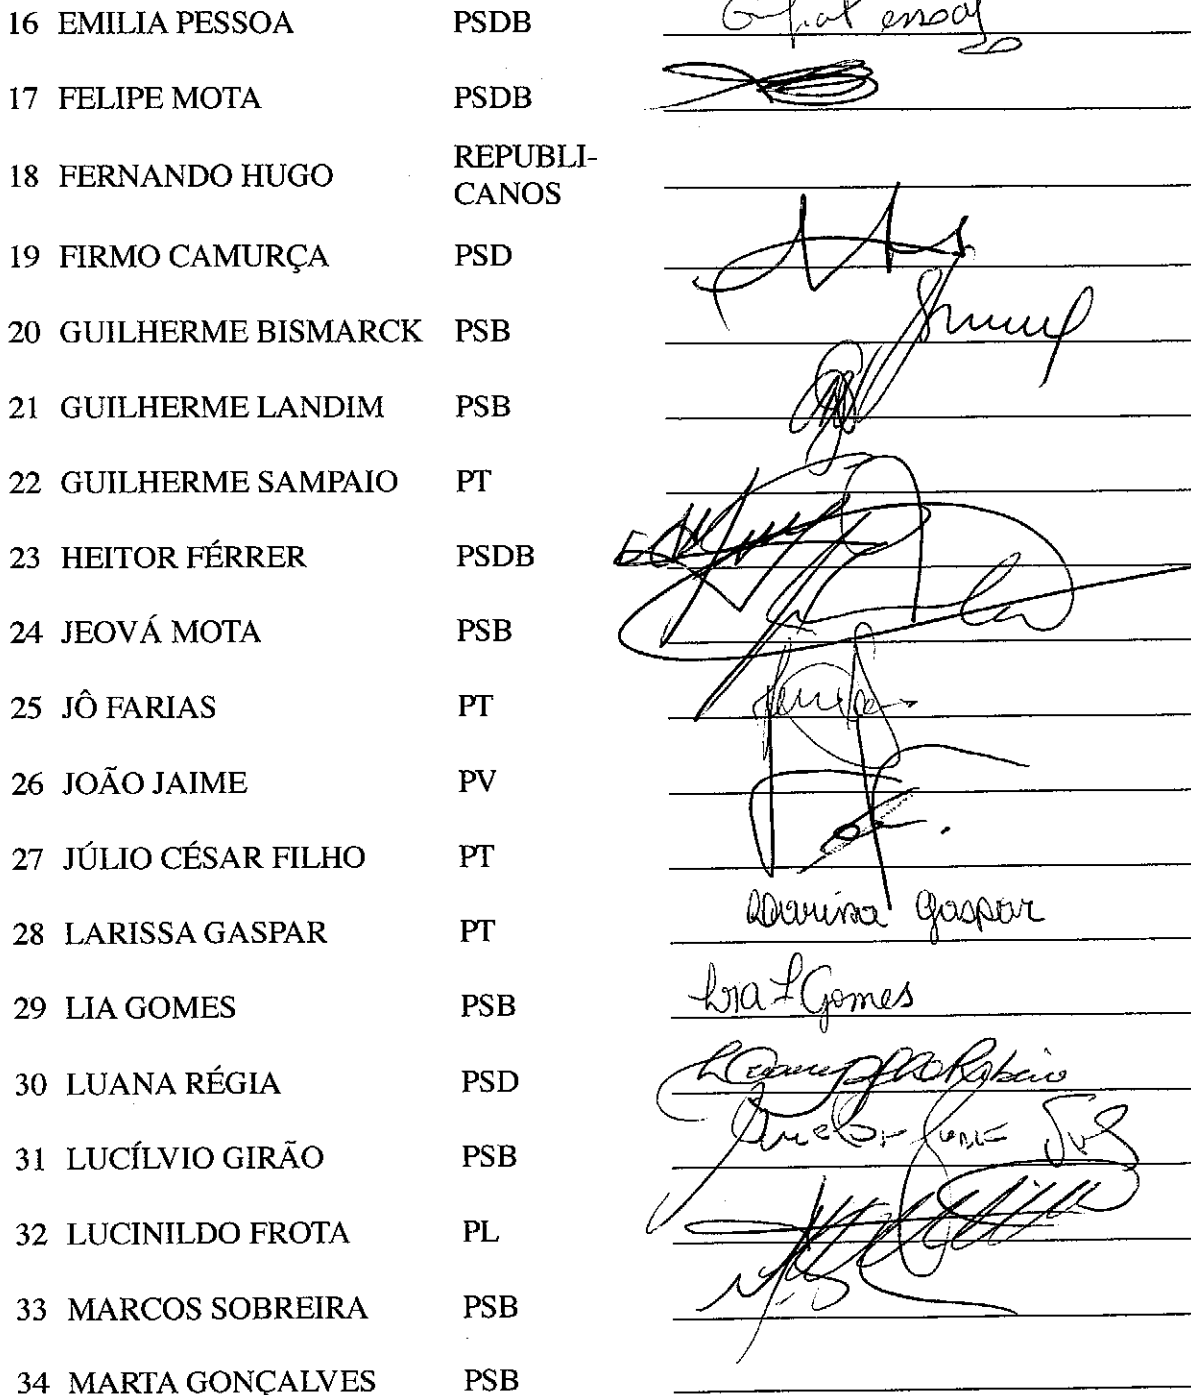 16 EMILIA PESSOA PSDB
17 FELIPE MOTA PSDB
18 FERNANDO HUGO REPUBLI-
CANOS
19 FIRMO CAMURÇA PSD
20 GUILHERME BISMARCK PSB
21 GUILHERME LANDIM PSB
22 GUILHERME SAMPAIO PT
23 HEITOR FÉRRER PSDB
24 JEOVÁ MOTA PSB
25 JÔ FARIAS PT
26 JOÃO JAIME PV
27 JÚLIO CÉSAR FILHO PT
28 LARISSA GASPAR PT Larissa Gaspar
29 LIA GOMES PSB Lia F Gomes
30 LUANA RÉGIA PSD
31 LUCÍLVIO GIRÃO PSB
32 LUCINILDO FROTA PL
33 MARCOS SOBREIRA PSB
34 MARTA GONÇALVES PSB